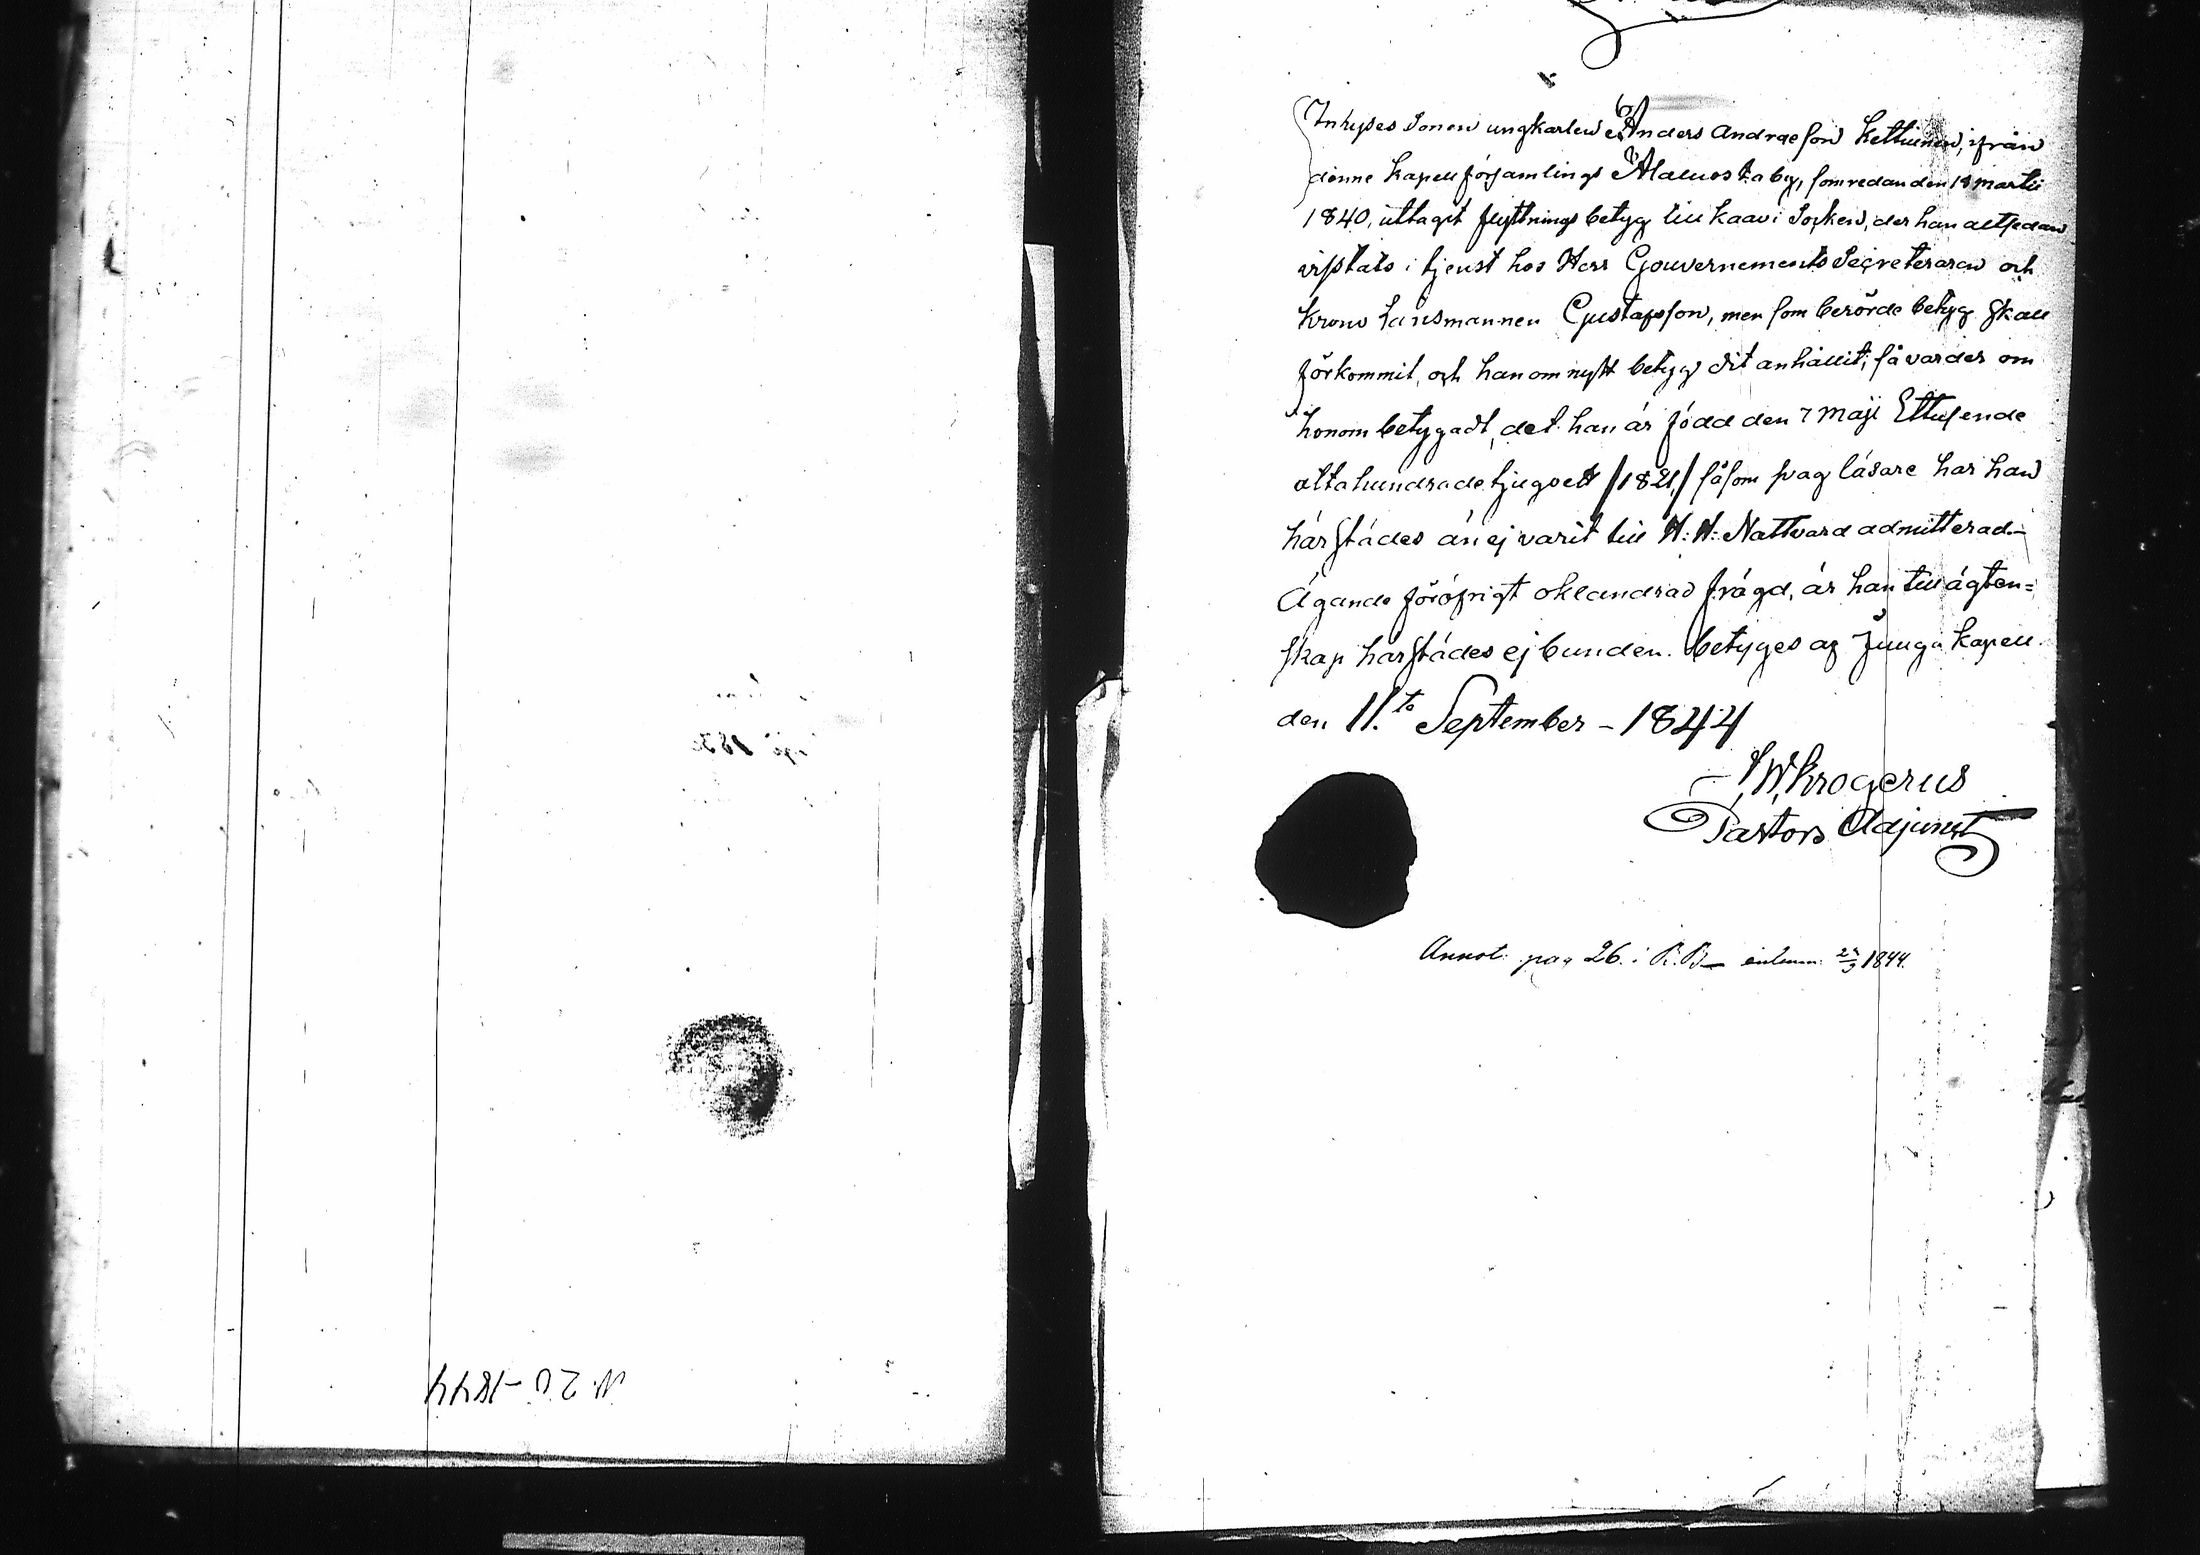 Inhyses Sonen ungkarlen Anders Andraeson Kettunen, ifrån
denne kapellförsamlings Alaluosta by, som redan den 18 Martii
1840, uttagit flyttnings betyg till Kaavi Socken, der han altsedan
vistats i tjenst hos Herr Gouvernements Secreteraren och
Krono Länsmannen Gustafsson, men som berörde betyg skall
förkommit, och han om nytt betyg dit anhållit; så varder om
honom betygadt, det han är född den 7 Maji Ettusende
åttahundrade tjugoett /1821,/ såsom svag läsare har han
härstädes än ej varit till H: H: Nattvard admitterad.-
Ägande föröfrigt oklandrad frägd, är han till ägten=
skap härstädes ej bunden. betyges af Juuga kapell
den 11.te September - 1844
Krogerus
Pastors Adjunct
Annot: pag 26. i R.B 27/9 1844.
N. 20 - 1844